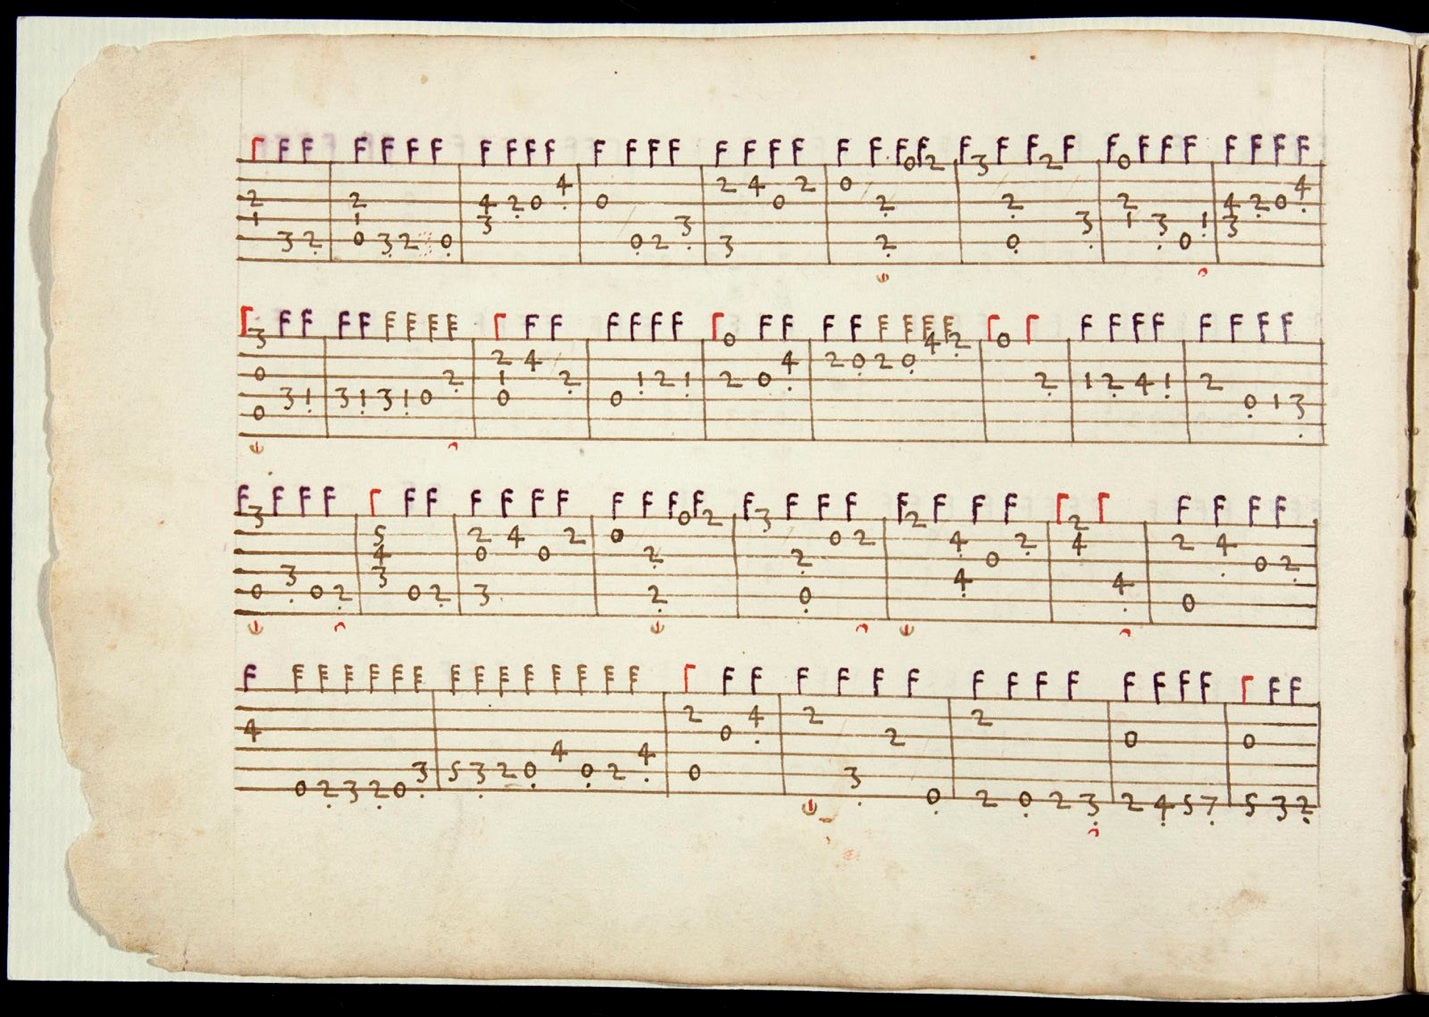 Γ F F F F F F F F F F F F F F F F F F F F F F F F F F F F F F F F F F
0 2 3 2 0
4 2 4 2 0 4
2 2 4 2 0 0 0 2 2 2 4 2 0
1 1 3 3 3 1 3 1 3
3 2 0 3 2 0 0 2 3 2 0 0
3 0 4 2 0
2 4 4 2 0 2 0
0 2 1 2 1 2 1 2 0 2 1 2 4 1 2
3 1 3 1 3 1 0 0 0 0 1 3
0
3 0 2 3 2 2
5 2 4 2 0 0 2 4 2 4 2 4
4 0 0 2 2 0 0 2
3 3 4 4
0 0 2 0 2 3 2 0 0
2 4 2 2
4 0 2 0 0
4 4
3 5 3 2 0 0 2 0 3
0 2 3 2 0 0 2 0 2 3 2 4 5 7 5 3 2